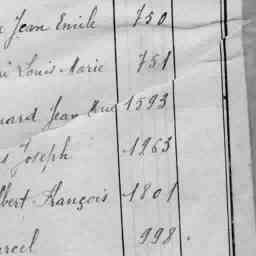 Jean Emile 750
Louis Marie 751
Jean 1593
Joseph 1263
François 1801
998.